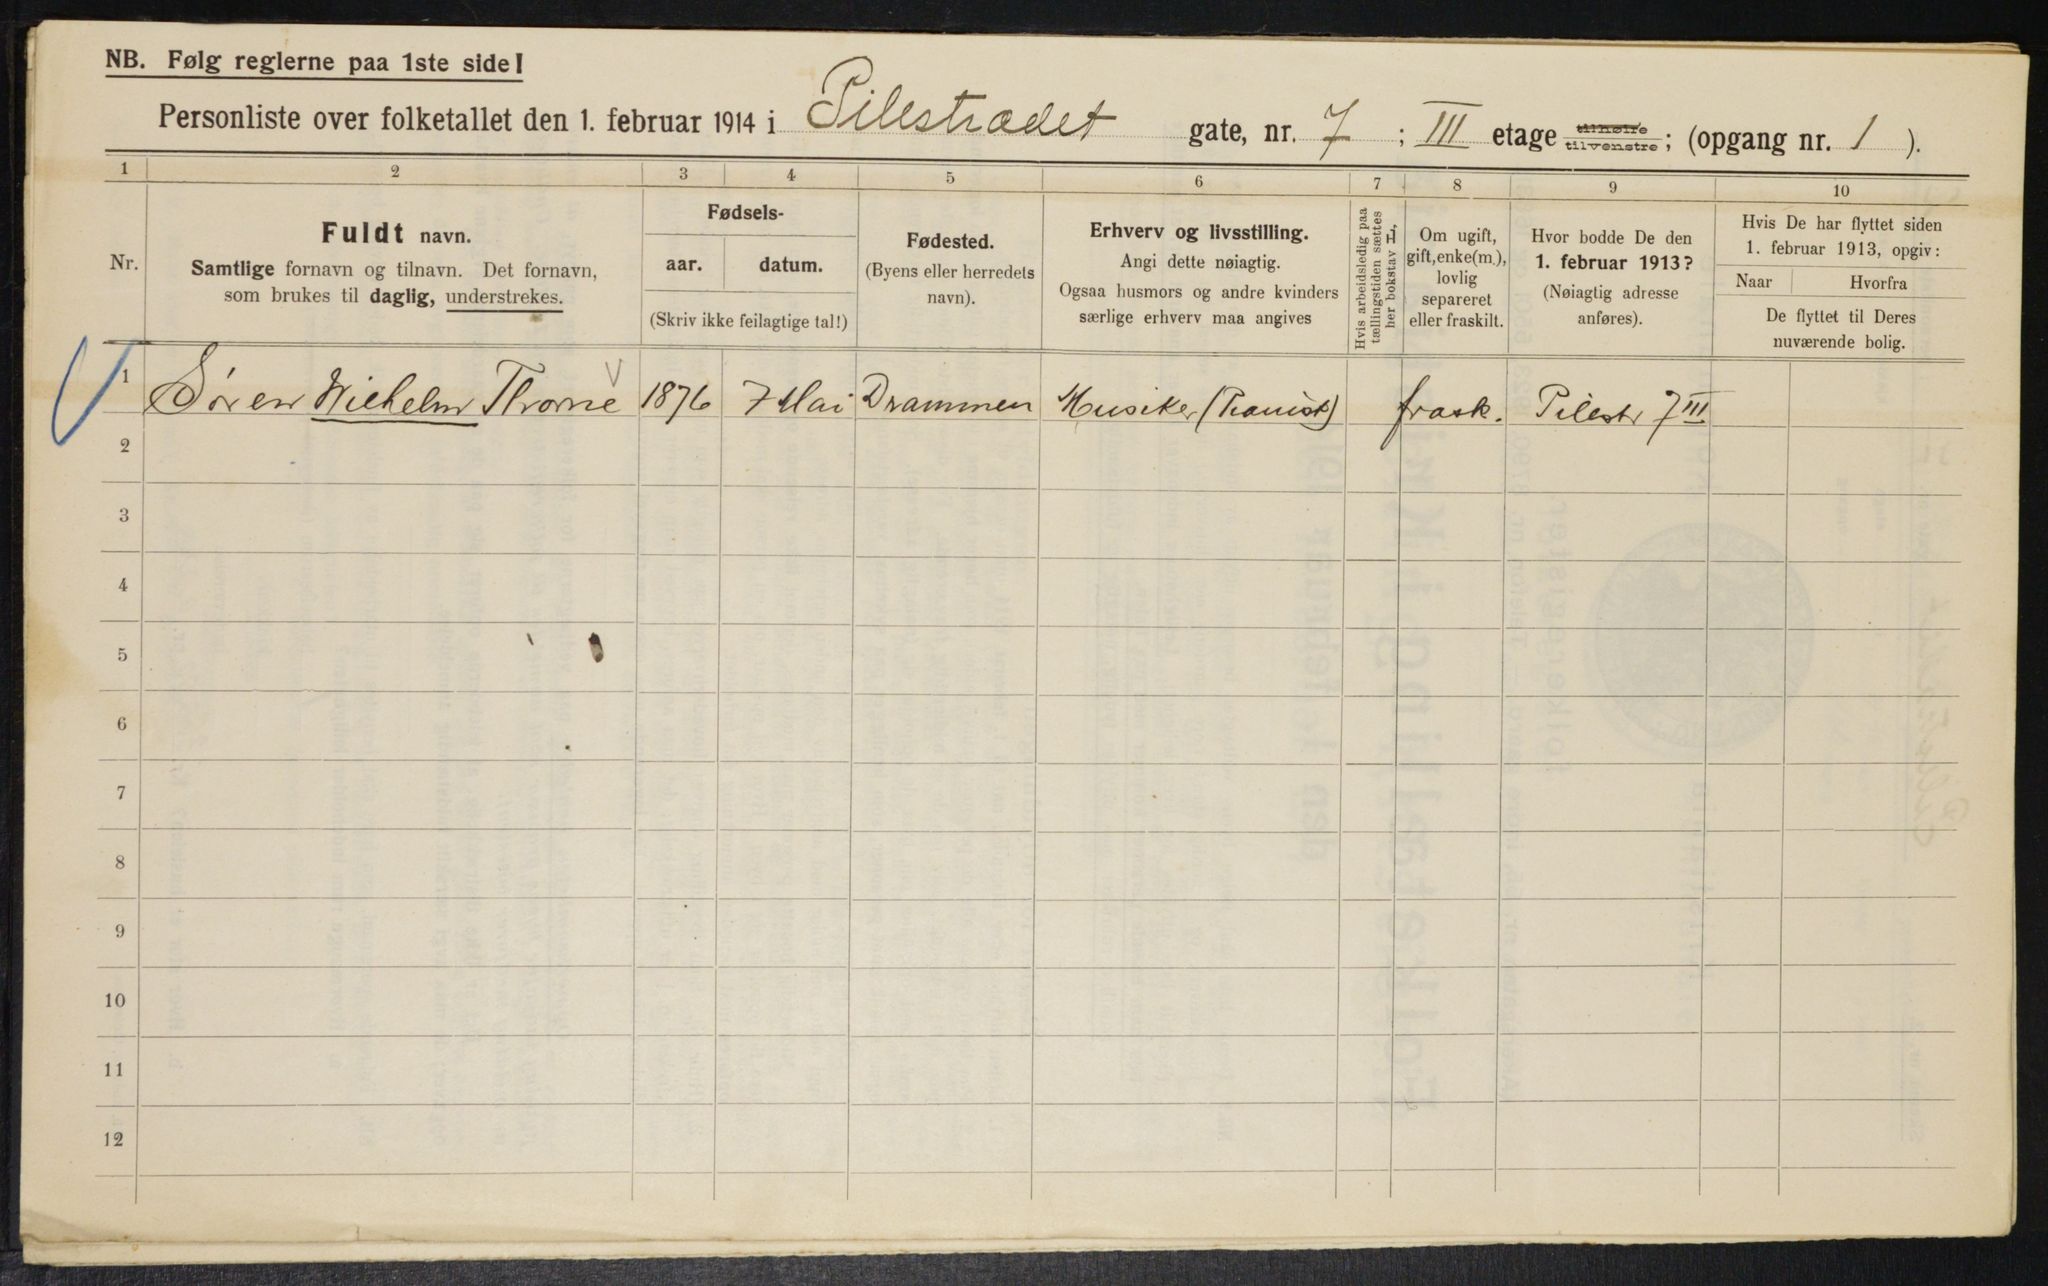 NB. Følg reglerne paa 1ste side!
Personliste over folketallet den 1. februar 1914 i Pilestrædet gate, nr. 7 ; III etage tilhøire tilvenstre; (opgang nr. 1 ).
1 2 3 4 5 6 7 8 9 10
Nr.
Fuldt navn.
Samtlige fornavn og tilnavn. Det fornavn,
som brukes til daglig, understrekes.
Fødsels-
aar. datum.
(Skriv ikke feilagtige tal!)
Fødested.
(Byens eller herredets
navn).
Erhverv og livsstilling.
Angi dette nøiagtig.
Ogsaa husmors og andre kvinders
særlige erhverv maa angives
Hvis arbeidsledig paa
tællingstiden sættes
her bokstav L,
Om ugift,
gift, enke(m.),
lovlig
separeret
eller fraskilt.
Hvor bodde De den
1. februar 1913?
(Nøiagtig adresse
anføres).
Hvis De har flyttet siden
1. februar 1913, opgiv:
Naar Hvorfra
De flyttet til Deres
nuværende bolig.
1 Søren Wilhelm Thorne 1876 7 Mai Drammen Musiker (Pianist) frask. Pilestr 7 III
2
3
4
5
6
7
8
9
10
11
12